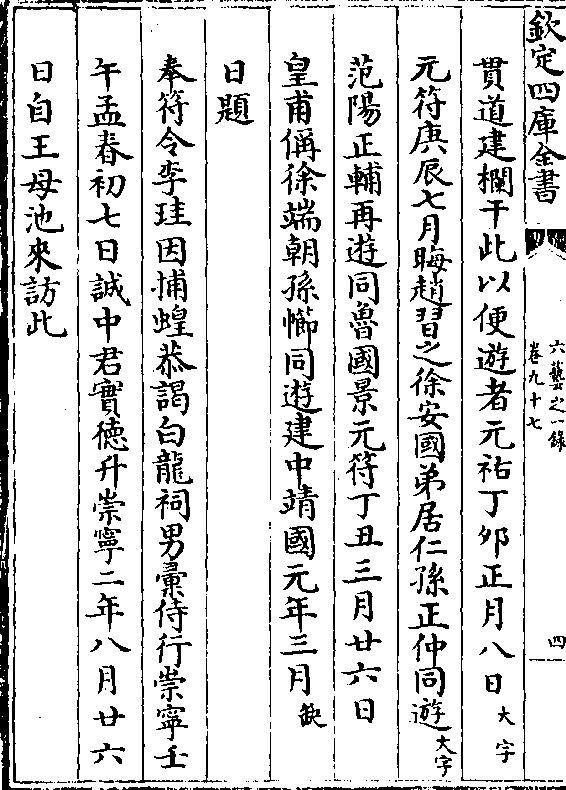 欽定四庫全書
六藝之一錄
卷九十七
四
貫道建欄干此以便遊者元祐丁卯正月八日大字
元符庚辰七月晦趙習之徐安國弟居仁孫正仲同遊大字
范陽正輔再遊同魯國景元符丁丑三月廿六日
皇甫偁徐端朝孫㦢同遊建中靖國元年三月缺
日題
奉符令李珪因捕蝗恭謁白龍祠男彚侍行崇寧壬
午孟春初七日誠中君實德升崇寧二年八月廿六
日自王母池來訪此